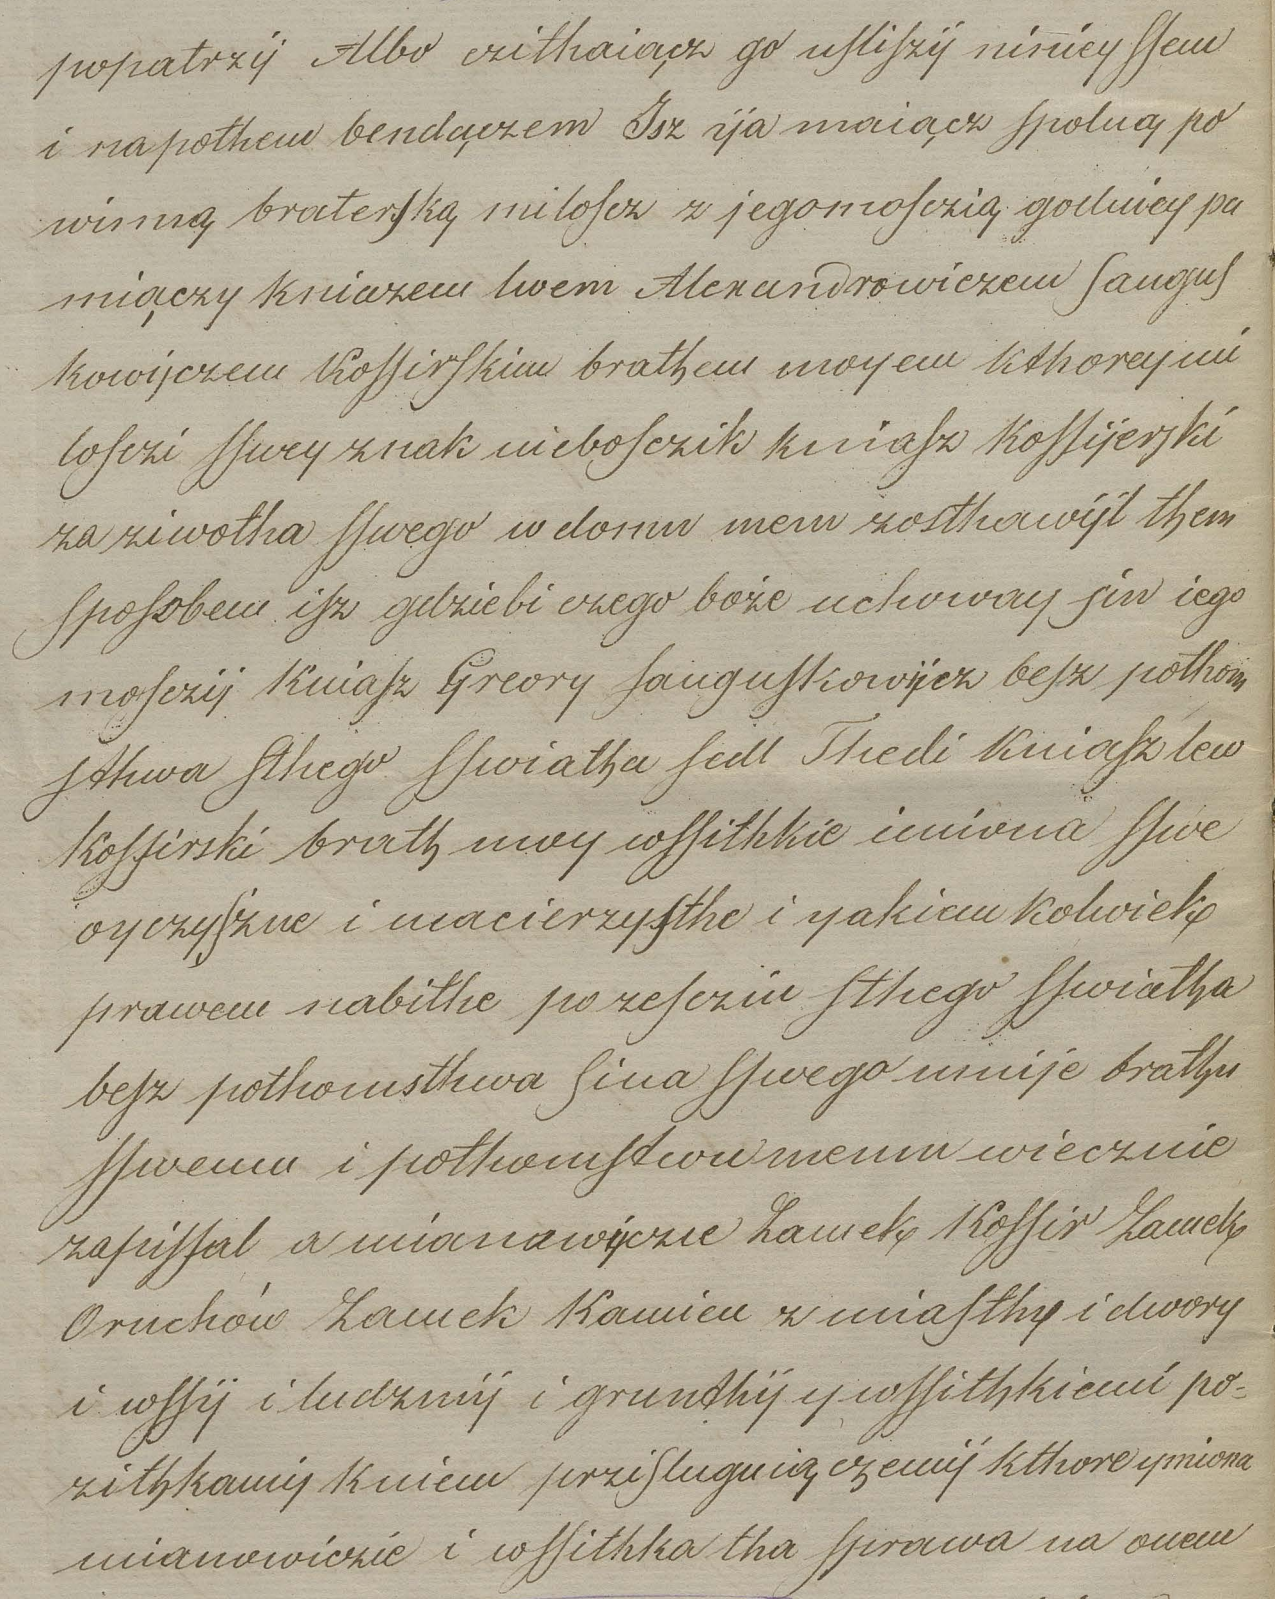 popatrzÿ Albo czithaiącz go usliszÿ ninieyssem
i napothem bendączem Isz ÿa maiącz spolną po
winną braterską miloscz z jegomosczią godney pa
miączy kniazem lwem Alexandrowiczem sangus
kowijczem Kossirskim brathem moyem kthorey mi
losczi sswey znak nieboszczik kniasz Kossijerski
za ziwotha sswego w domu mem zosthawÿl them
sposobem isz gdziebi czego boże uchoway sin iego
mosczÿ Kniasz Greory sanguskowÿcz besz pothom
sthwa sthego sswiatha sedl Thedi Kniasz lew
Kossirski brath moy wssithkie imiona sswe
oyczyszne i macierzysthe i yakiem kolwiek
prawem nabithe po zescziu sthego sswiatha
besz pothomsthwa sina sswego mnije brathu
sswemu i pothomstwu memu wiecznie
zapissal a mianowÿcznie Zamek Kossir Zamek
Oruchów Zamek Kamien z miasthy i dwory
i wssÿ i ludzmÿ i grunthÿ y wssithkiemi po-
zithkamÿ kniem przisluguiączemÿ kthore ymiona
mianowiczie i wssithka tha sprawa na onem